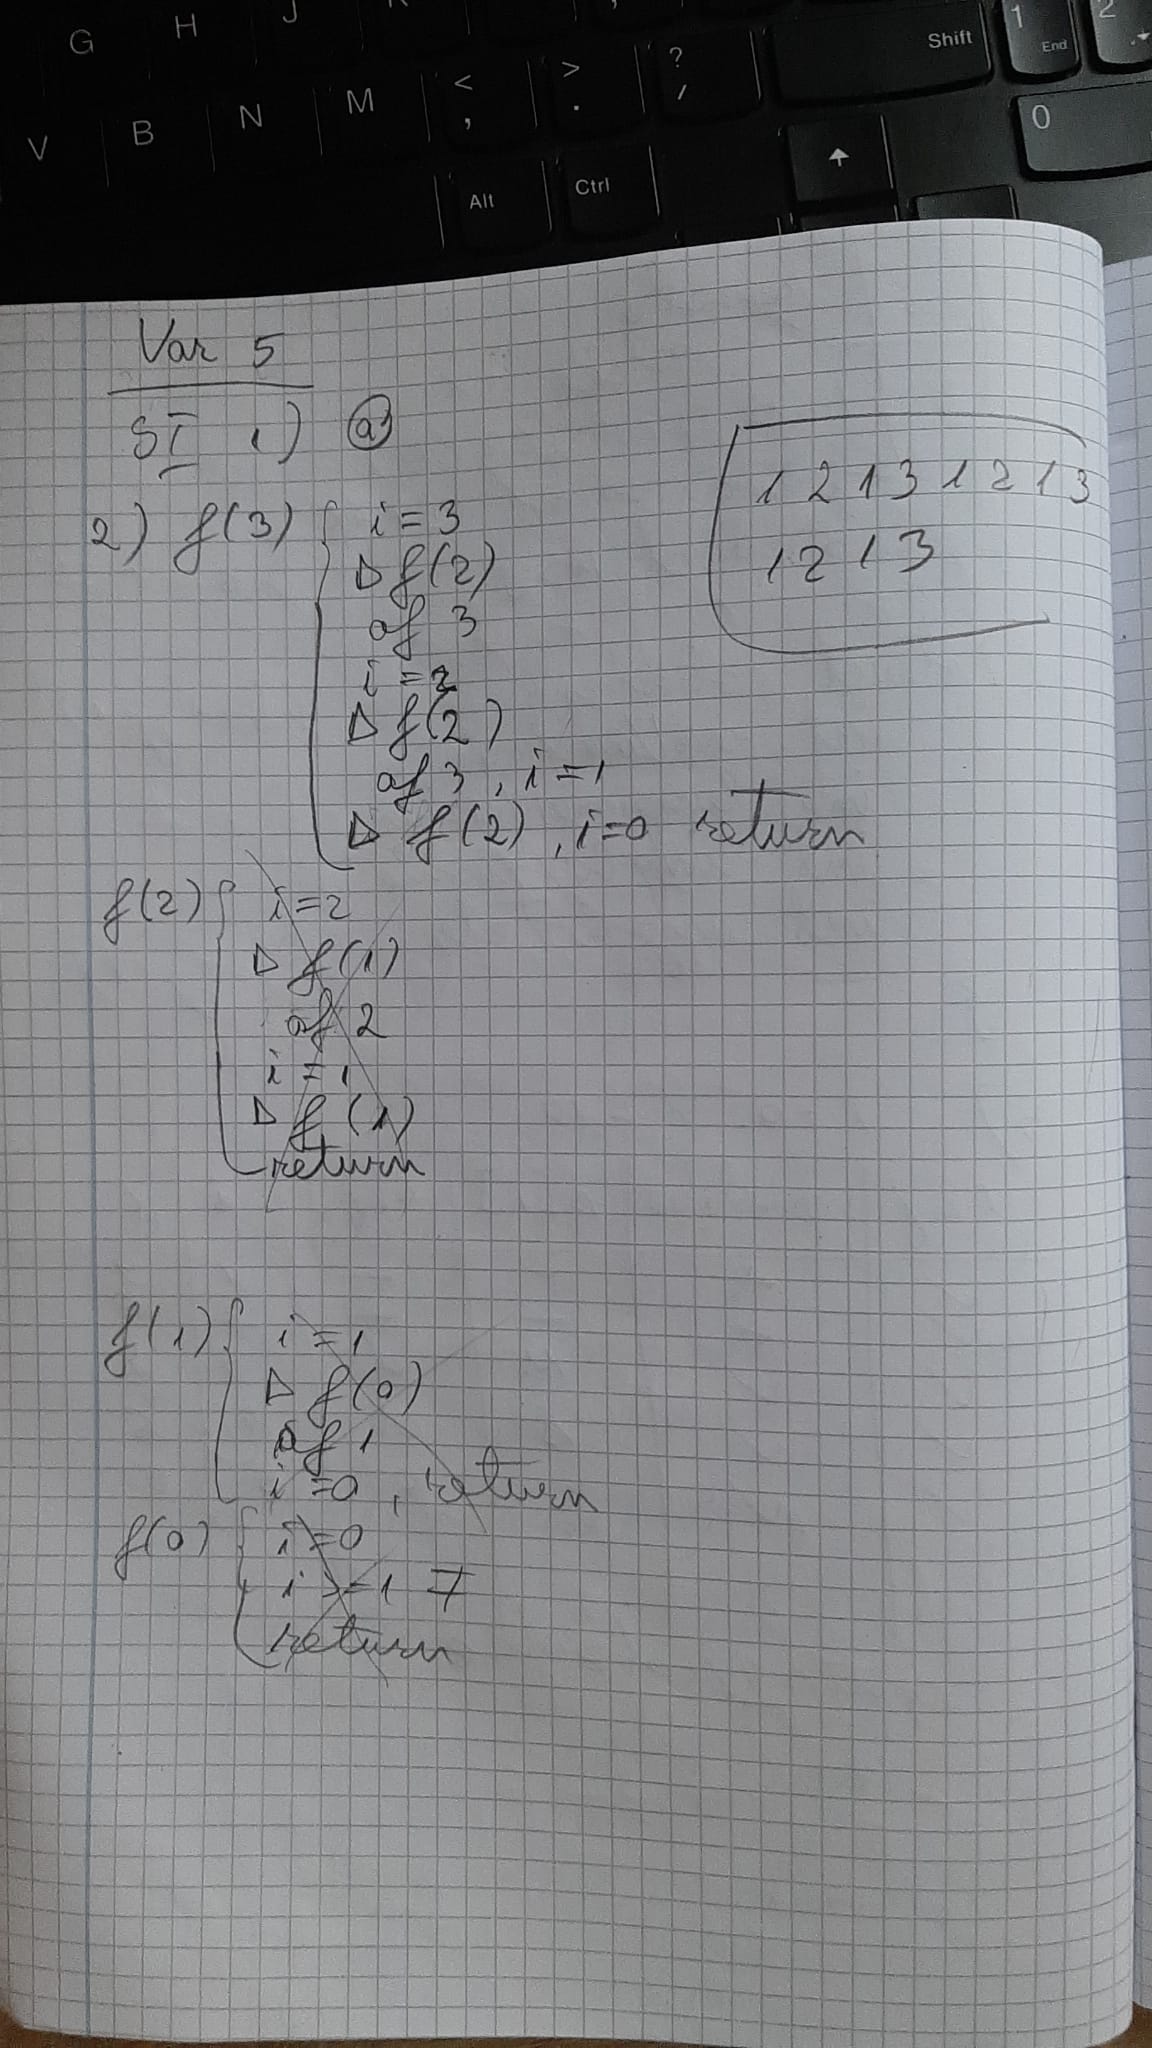 G H J
V B N M < , > . ? / Shift 1 End 2
Alt Ctrl 0
Var 5
SI 1) a
2) f(3) { i = 3
▷ f(2)
af 3
i = 2
▷ f(2)
af 3, i = 1
▷ f(2), i=0 return
1 2 1 3 1 2 1 3
1 2 1 3
f(2) { i = 2
▷ f(1)
af 2
i = 1
▷ f(1)
return
f(1) { i = 1
▷ f(0)
af 1
i = 0, return
f(0) { i = 0
i >= 1 F
return